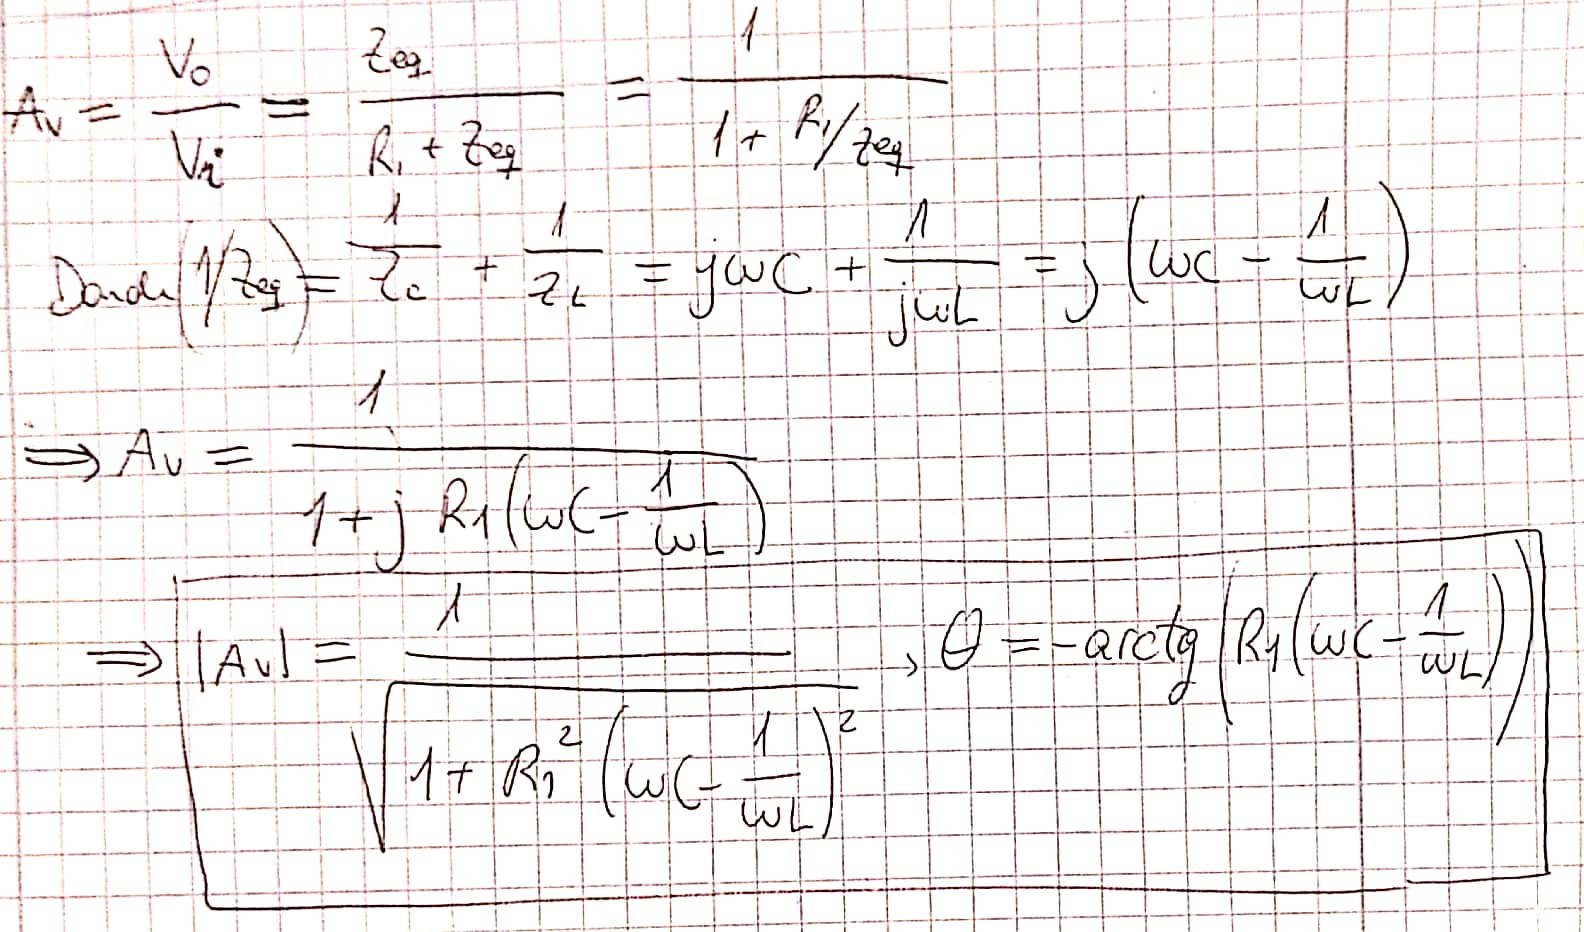 Av = Vo/Vi = Zeq/(R1 + Zeq) = 1/(1 + R1/Zeq)
Donde (1/Zeq) = 1/Zc + 1/ZL = jωC + 1/(jωL) = j(ωC - 1/(ωL))
⇒ Av = 1/(1 + j R1(ωC - 1/(ωL)))
⇒ |Av| = 1/√(1 + R1²(ωC - 1/(ωL))²) , θ = -arctg(R1(ωC - 1/(ωL)))